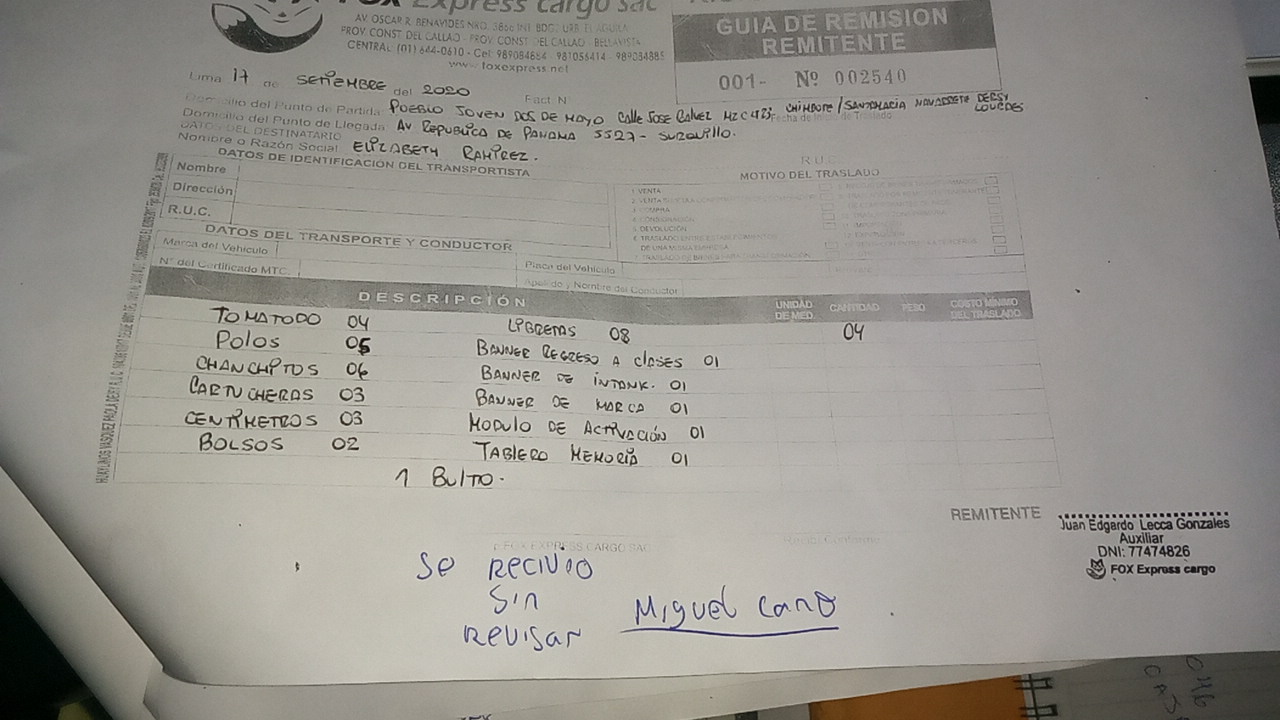 FOX Express cargo sac
AV. OSCAR R. BENAVIDES NRO. 3866 INT. BDG. URB. EL AGUILA
PROV. CONST. DEL CALLAO - PROV. CONST. DEL CALLAO - BELLAVISTA
CENTRAL: (01) 644-0610 - Cel: 989084664 - 981056414 - 989084885
www.foxexpress.net
GUIA DE REMISION
REMITENTE
001- Nº 002540
Lima 17 de SETIEMBRE del 2020 Fact. N
Domicilio del Punto de Partida: PUEBLO JOVEN DOS DE MAYO CALLE JOSE GALVEZ MZ C 423, CHIMBOTE / SANTA MARIA NAVARRETE DERSY LOURDES
Domicilio del Punto de Llegada: AV REPUBLICA DE PANAMA 5527 - SURQUILLO.
DATOS DEL DESTINATARIO
Nombre o Razón Social: ELIZABETH RAMIREZ.
R.U.C.
DATOS DE IDENTIFICACIÓN DEL TRANSPORTISTA
MOTIVO DEL TRASLADO
Nombre
Dirección
R.U.C.
1. VENTA
3. COMPRA
4. CONSIGNACION
5. DEVOLUCIÓN
6. TRASLADO ENTRE ESTABLECIMIENTOS
DE UNA MISMA EMPRESA
7. TRASLADO DE BIENES PARA TRANSFORMACION
DATOS DEL TRANSPORTE Y CONDUCTOR
Marca del Vehículo
Placa del Vehículo
N° del Certificado MTC.
Apellido y Nombre del Conductor
DESCRIPCIÓN UNIDAD DE MED. CANTIDAD PESO COSTO MÍNIMO DEL TRASLADO
TOMATODO 04 LIBRETAS 08 04
POLOS 05 BANNER REGRESO A CLASES 01
CHANCHITOS 06 BANNER DE INTANK. 01
CARTUCHERAS 03 BANNER DE MARCA 01
CENTÍMETROS 03 MODULO DE ACTIVACIÓN 01
BOLSOS 02 TABLERO MEMORIA 01
1 BULTO.
REMITENTE
p. FOX EXPRESS CARGO SAC
Recibí Conforme
Juan Edgardo Lecca Gonzales
Auxiliar
DNI: 77474826
FOX Express cargo
Se RECIVIO
Sin
REVISAR
Miguel Cano